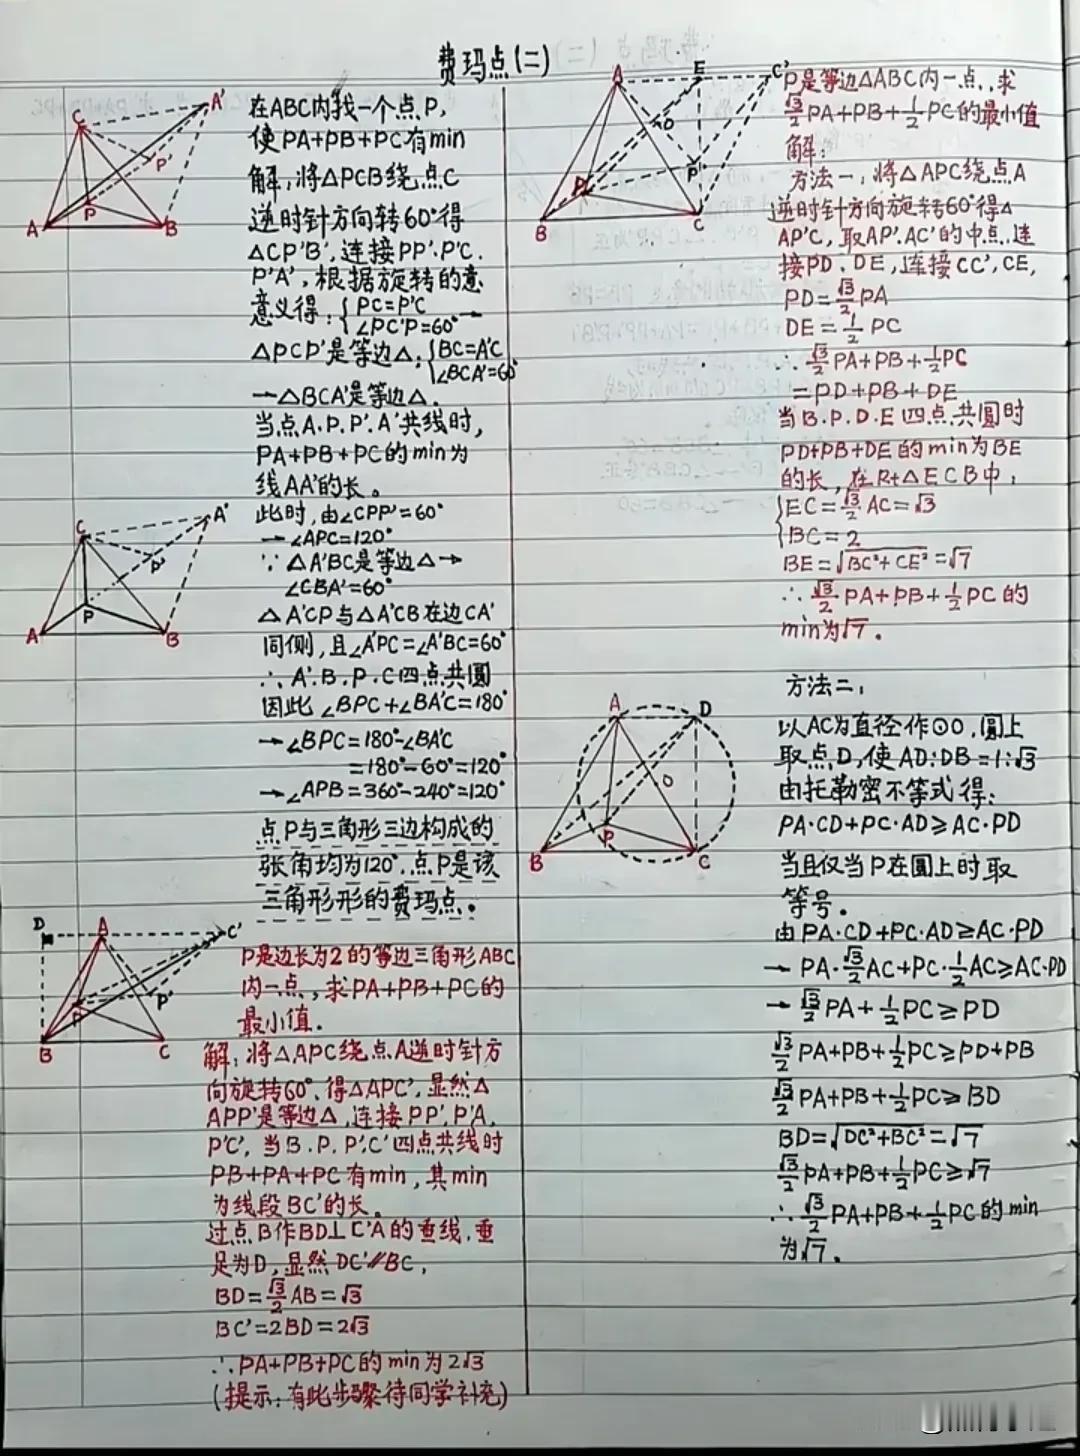 费玛点(二)
在ABC内找一个点P,
使PA+PB+PC有min
解:将△PCB绕点C
逆时针方向转60°得
△CP'B',连接PP'.P'C.
P'A',根据旋转的意
意义得:{PC=P'C
∠PC'P=60°→
△PCP'是等边△,{BC=A'C
∠BCA'=60°
→△BCA'是等边△.
当点A.P.P'.A'共线时,
PA+PB+PC的min为
线AA'的长。
此时,由∠CPP'=60°
→∠APC=120°
∵△A'BC是等边△→
∠CBA'=60°
△A'CP与△A'CB在边CA'
同侧,且∠A'PC=∠A'BC=60°
∴A'.B.P.C四点共圆
因此∠BPC+∠BA'C=180°
→∠BPC=180°-∠BA'C
=180°-60°=120°
→∠APB=360°-240°=120°
点P与三角形三边构成的
张角均为120°.点P是该
三角形形的费玛点。
P是边长为2的等边三角形ABC
内一点,求PA+PB+PC的
最小值.
解:将△APC绕点A逆时针方
向旋转60°,得△APC',显然△
APP'是等边△,连接PP',P'A,
P'C',当B.P.P'.C'四点共线时
PB+PA+PC有min,其min
为线段BC'的长。
过点B作BD⊥C'A的垂线,垂
足为D,显然DC'∥BC,
BD=√3/2AB=√3
BC'=2BD=2√3
∴PA+PB+PC的min为2√3
(提示:有此步骤待同学补充)
P是等边△ABC内一点,求
√3/2PA+PB+1/2PC的最小值
解:
方法一,将△APC绕点A
逆时针方向旋转60°得△
AP'C,取AP'.AC'的中点,连
接PD、DE,连接CC',CE,
PD=√3/2PA
DE=1/2PC
∴√3/2PA+PB+1/2PC
=PD+PB+DE
当B.P.D.E四点共圆时
PD+PB+DE的min为BE
的长,在Rt△ECB中,
{EC=√3/2AC=√3
BC=2
BE=√BC²+CE²=√7
∴√3/2PA+PB+1/2PC的
min为√7.
方法二,
以AC为直径作⊙O,圆上
取点D,使AD:DB=1:√3
由托勒密不等式得:
PA·CD+PC·AD≥AC·PD
当且仅当P在圆上时取
等号。
由PA·CD+PC·AD≥AC·PD
→PA·√3/2AC+PC·1/2AC≥AC·PD
→√3/2PA+1/2PC≥PD
√3/2PA+PB+1/2PC≥PD+PB
√3/2PA+PB+1/2PC≥BD
BD=√DC²+BC²=√7
√3/2PA+PB+1/2PC≥√7
∴√3/2PA+PB+1/2PC的min
为√7.
A'
C
P'
P
A
B
C
A'
P'
P
A
B
D
A
C'
P'
P
B
C
A
E
C'
D
P
P'
B
C
A
D
O
P
B
C